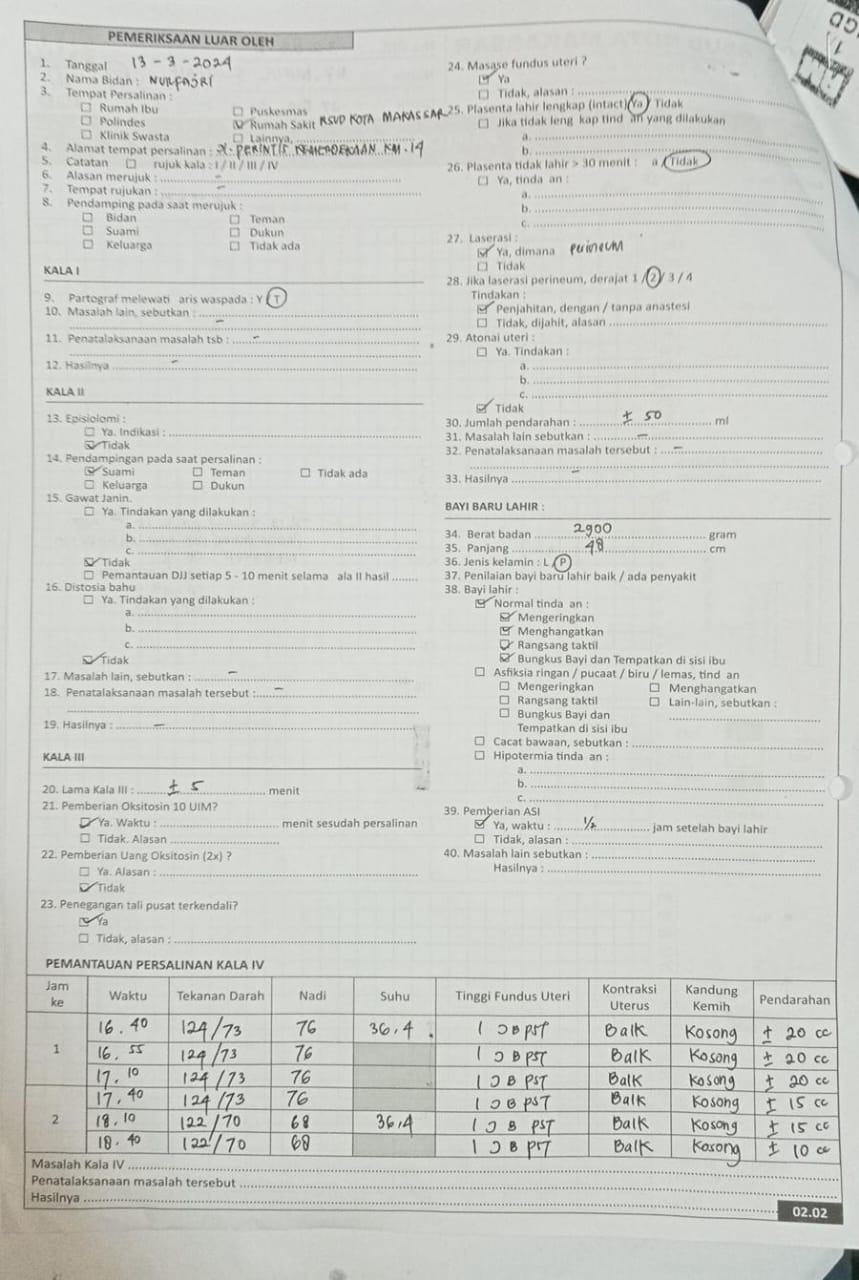 PEMERIKSAAN LUAR OLEH
1. Tanggal 13 - 3 - 2024
2. Nama Bidan : NURFAJRI
3. Tempat Persalinan :
☐ Rumah Ibu ☐ Puskesmas
☐ Polindes ☑ Rumah Sakit RSUD KOTA MAKASSAR
☐ Klinik Swasta ☐ Lainnya,
4. Alamat tempat persalinan : Jl. PERINTIS KEMERDEKAAN KM. 14
5. Catatan ☐ rujuk kala : I / II / III / IV
6. Alasan merujuk : -
7. Tempat rujukan : -
8. Pendamping pada saat merujuk :
☐ Bidan ☐ Teman
☐ Suami ☐ Dukun
☐ Keluarga ☐ Tidak ada
KALA I
9. Partograf melewati aris waspada : Y / T
10. Masalah lain, sebutkan : -
11. Penatalaksanaan masalah tsb : -
12. Hasilnya -
KALA II
13. Episiolomi :
☐ Ya. Indikasi :
☑ Tidak
14. Pendampingan pada saat persalinan :
☑ Suami ☐ Teman ☐ Tidak ada
☐ Keluarga ☐ Dukun
15. Gawat Janin.
☐ Ya. Tindakan yang dilakukan :
a.
b.
c.
☑ Tidak
☐ Pemantauan DJJ setiap 5 - 10 menit selama ala II hasil
16. Distosia bahu
☐ Ya. Tindakan yang dilakukan :
a.
b.
c.
☑ Tidak
17. Masalah lain, sebutkan : -
18. Penatalaksanaan masalah tersebut : -
19. Hasilnya : -
KALA III
20. Lama Kala III : ± 5 menit
21. Pemberian Oksitosin 10 UIM?
☑ Ya. Waktu : menit sesudah persalinan
☐ Tidak. Alasan
22. Pemberian Uang Oksitosin (2x) ?
☐ Ya. Alasan :
☑ Tidak
23. Penegangan tali pusat terkendali?
☑ Ya
☐ Tidak, alasan :
24. Masase fundus uteri ?
☑ Ya
☐ Tidak, alasan :
25. Plasenta lahir lengkap (intact) Ya / Tidak
☐ Jika tidak leng kap tind an yang dilakukan
a.
b.
26. Plasenta tidak lahir > 30 menit : a / Tidak
☐ Ya, tinda an :
a.
b.
c.
27. Laserasi :
☑ Ya, dimana perineum
☐ Tidak
28. Jika laserasi perineum, derajat 1 / 2 / 3 / 4
Tindakan :
☑ Penjahitan, dengan / tanpa anastesi
☐ Tidak, dijahit, alasan
29. Atonai uteri :
☐ Ya. Tindakan :
a.
b.
c.
☑ Tidak
30. Jumlah pendarahan : ± 50 ml
31. Masalah lain sebutkan : -
32. Penatalaksanaan masalah tersebut : -
33. Hasilnya -
BAYI BARU LAHIR :
34. Berat badan 2900 gram
35. Panjang 48 cm
36. Jenis kelamin : L / P
37. Penilaian bayi baru lahir baik / ada penyakit
38. Bayi lahir :
☑ Normal tinda an :
☑ Mengeringkan
☑ Menghangatkan
☑ Rangsang taktil
☑ Bungkus Bayi dan Tempatkan di sisi ibu
☐ Asfiksia ringan / pucaat / biru / lemas, tind an
☐ Mengeringkan ☐ Menghangatkan
☐ Rangsang taktil ☐ Lain-lain, sebutkan :
☐ Bungkus Bayi dan
Tempatkan di sisi ibu
☐ Cacat bawaan, sebutkan :
☐ Hipotermia tinda an :
a.
b.
c.
39. Pemberian ASI
☑ Ya, waktu : 1/2 jam setelah bayi lahir
☐ Tidak, alasan :
40. Masalah lain sebutkan :
Hasilnya :
PEMANTAUAN PERSALINAN KALA IV
Jam ke Waktu Tekanan Darah Nadi Suhu Tinggi Fundus Uteri Kontraksi Uterus Kandung Kemih Pendarahan
1 16.40 124/73 76 36,4 1 JB PST Baik Kosong ± 20 cc
16.55 124/73 76 1 JB PST Baik Kosong ± 20 cc
17.10 124/73 76 1 JB PST Baik Kosong ± 20 cc
17.40 124/73 76 1 JB PST Baik Kosong ± 15 cc
2 18.10 122/70 68 36,4 1 JB PST Baik Kosong ± 15 cc
18.40 122/70 68 1 JB PST Baik Kosong ± 10 cc
Masalah Kala IV
Penatalaksanaan masalah tersebut
Hasilnya
02.02